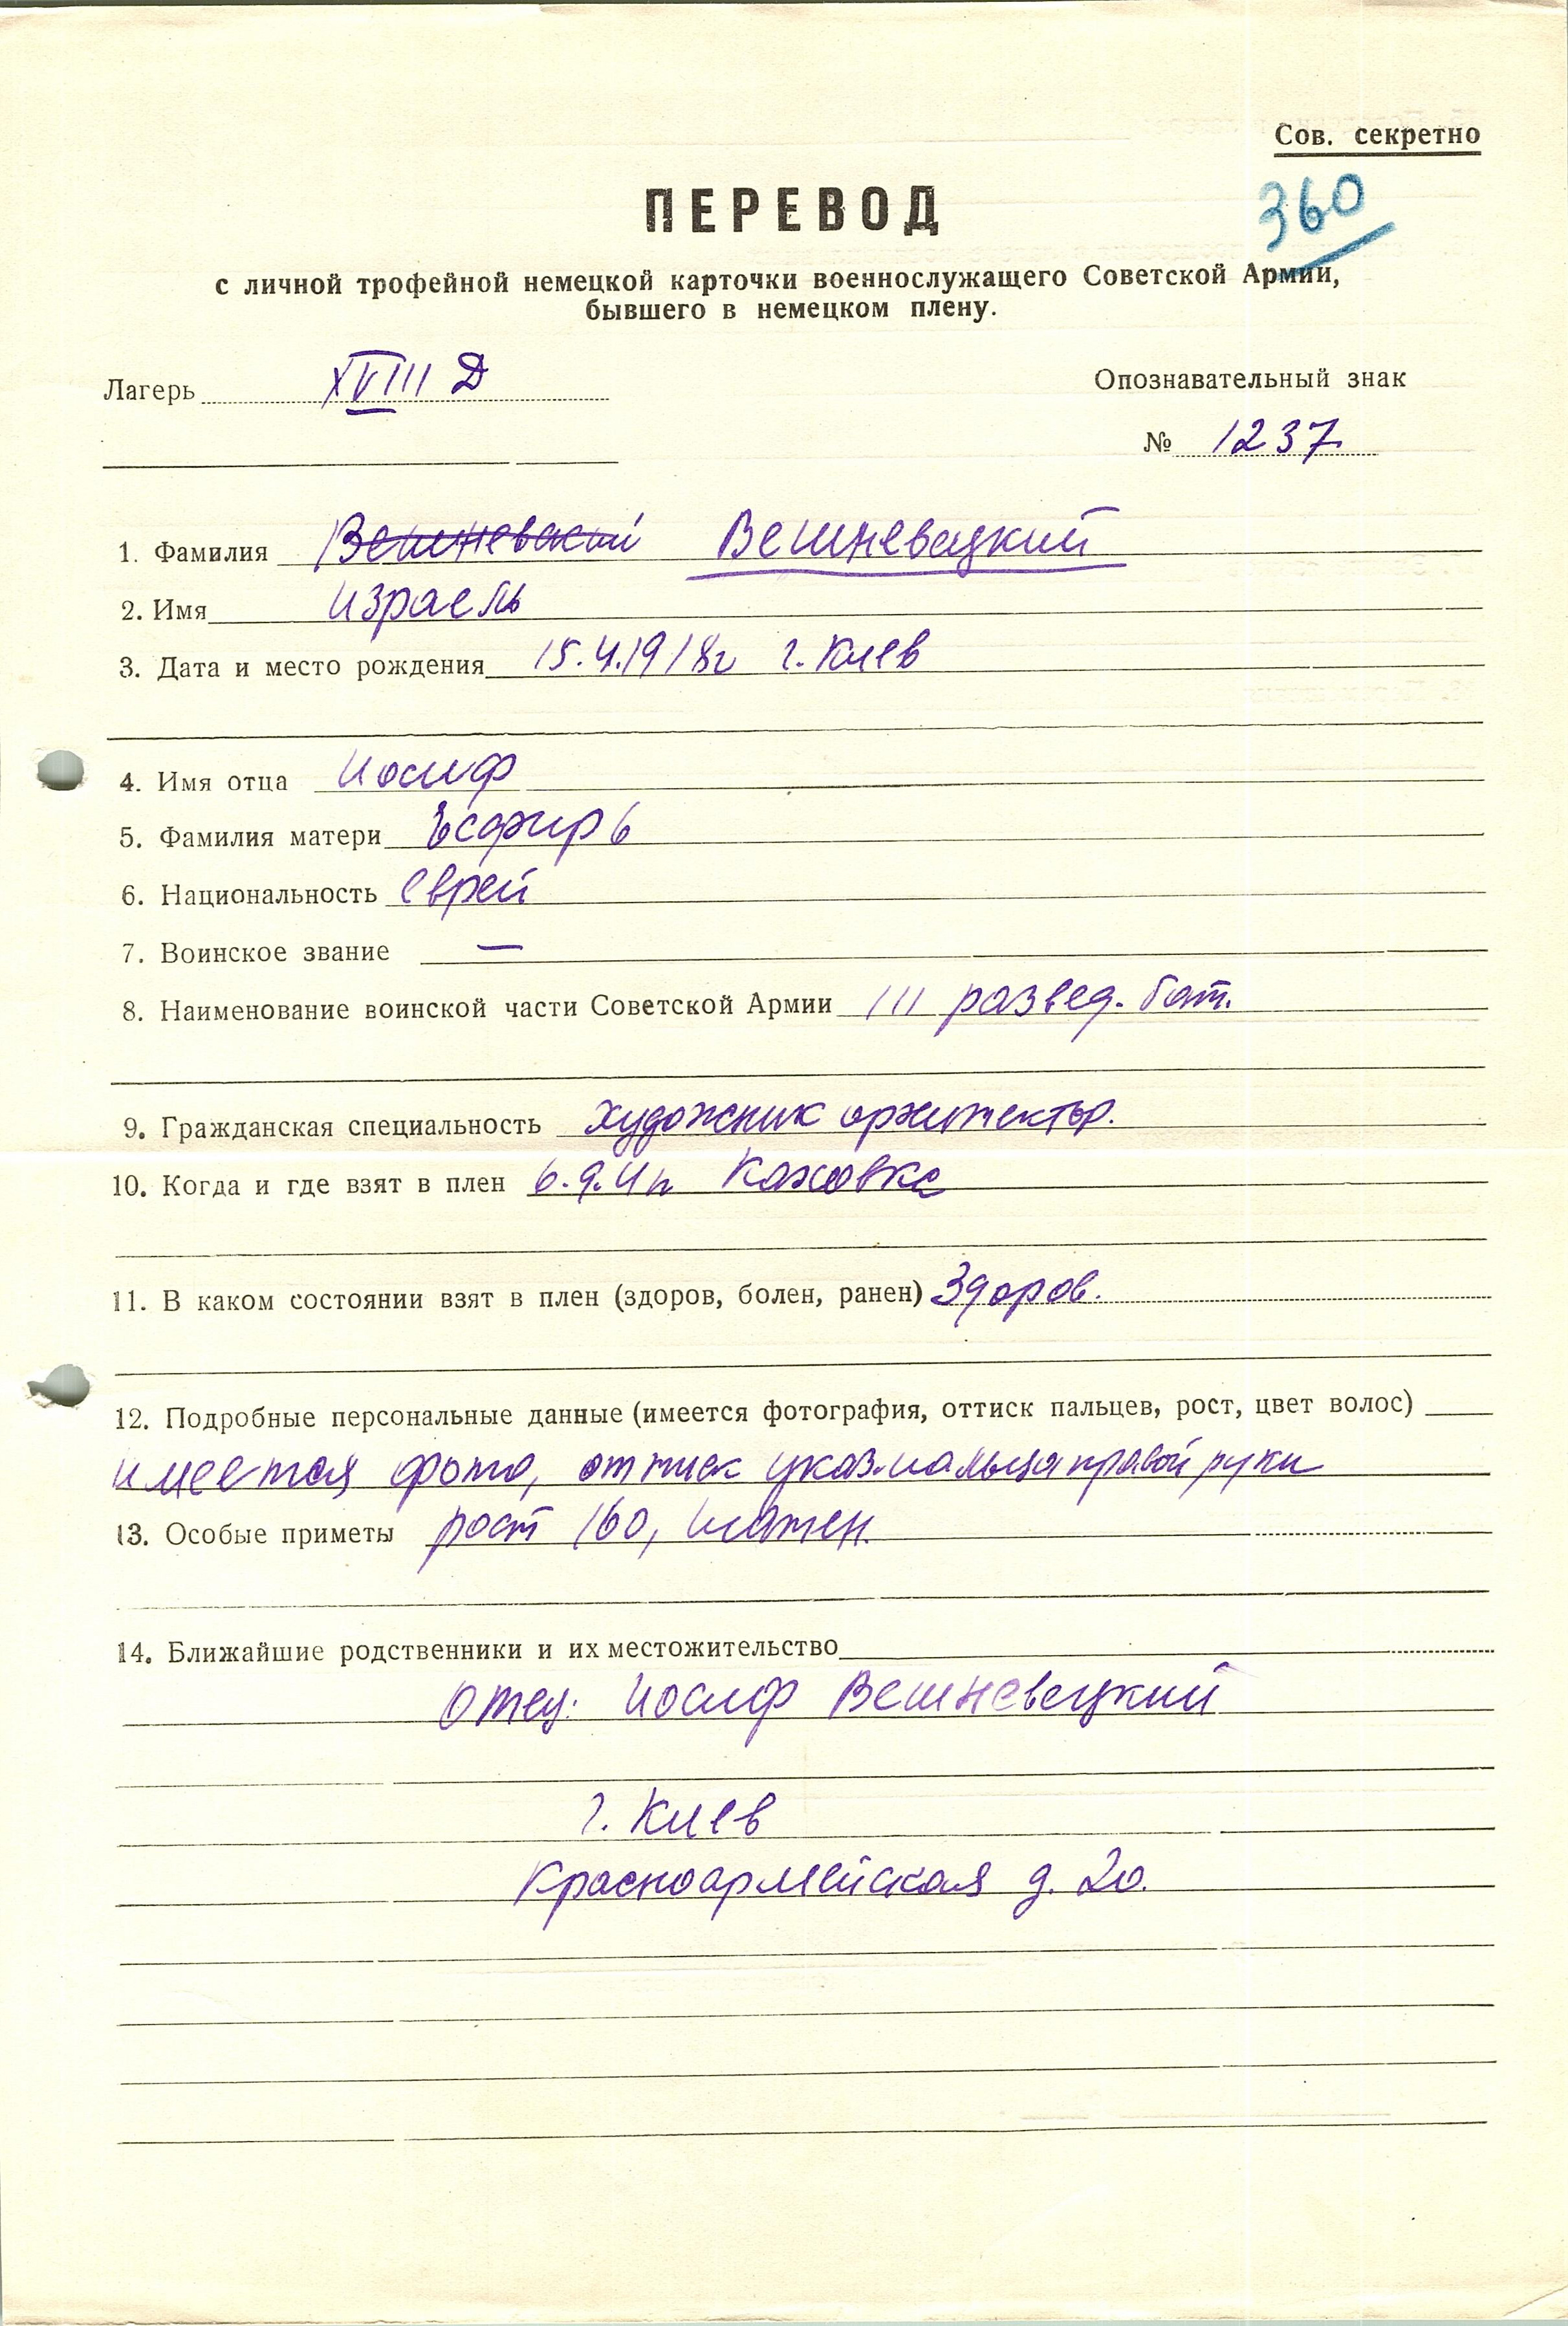 Сов. секретно
360
ПЕРЕВОД
с личной трофейной немецкой карточки военнослужащего Советской Армии,
бывшего в немецком плену.
Лагерь XVIII Д
Опознавательный знак
№ 1237
1. Фамилия Вешневецкий
2. Имя Израель
3. Дата и место рождения 15.4.1918г г. Киев
4. Имя отца Иосиф
5. Фамилия матери Эсфирь
6. Национальность еврей
7. Воинское звание —
8. Наименование воинской части Советской Армии 111 развед. бат.
9. Гражданская специальность художник архитектор.
10. Когда и где взят в плен 6.9.41г Каховка
11. В каком состоянии взят в плен (здоров, болен, ранен) Здоров.
12. Подробные персональные данные (имеется фотография, оттиск пальцев, рост, цвет волос)
имеется фото, оттиск указ. пальца правой руки
13. Особые приметы рост 160, шатен.
14. Ближайшие родственники и их местожительство
отец: Иосиф Вешневецкий
г. Киев
Красноармейская д. 20.